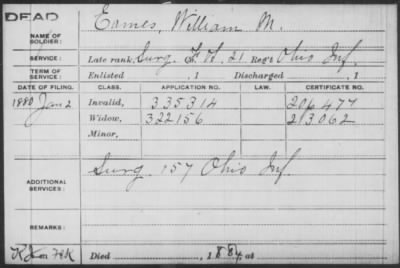 DEAD
NAME OF SOLDIER: Eames, William M.
SERVICE: Late rank, Surg. F & S. 21 Reg't Ohio Inf.
TERM OF SERVICE: Enlisted , 1 Discharged , 1
DATE OF FILING. CLASS. APPLICATION NO. CERTIFICATE NO.
1880 Jan 2 Invalid, 335314 206477
Widow, 322156 213062
Minor,
ADDITIONAL SERVICES: Surg. 157 Ohio Inf.
REMARKS:
Died , 1884, at